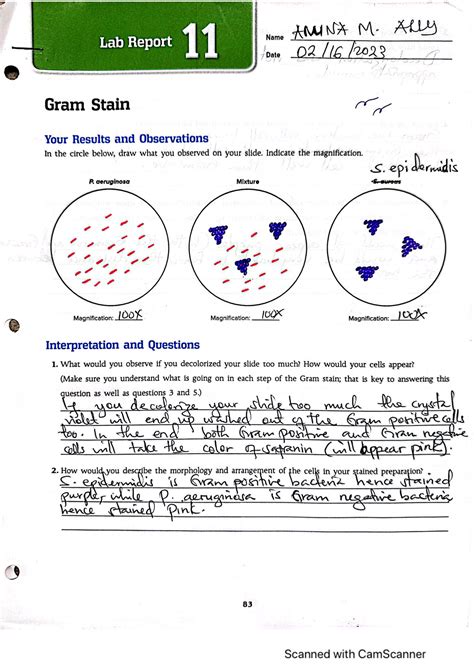 Lab Report 11
Name AMINA M. ALLY
Date 02/16/2023
Gram Stain
Your Results and Observations
In the circle below, draw what you observed on your slide. Indicate the magnification.
S. epidermidis
P. aeruginosa Mixture S. aureus
Magnification: 100X Magnification: 100X Magnification: 100X
Interpretation and Questions
1. What would you observe if you decolorized your slide too much? How would your cells appear?
(Make sure you understand what is going on in each step of the Gram stain; that is key to answering this
question as well as questions 3 and 5.)
If you decolorize your slide too much the crystal
violet will end up washed out of the Gram positive cells
too. In the end both Gram positive and Gram negative
cells will take the color of safranin (will appear pink).
2. How would you describe the morphology and arrangement of the cells in your stained preparation?
S. epidermidis is Gram positive bacteria hence stained
purple, while P. aeruginosa is Gram negative bacteria
hence stained Pink.
83
Scanned with CamScanner